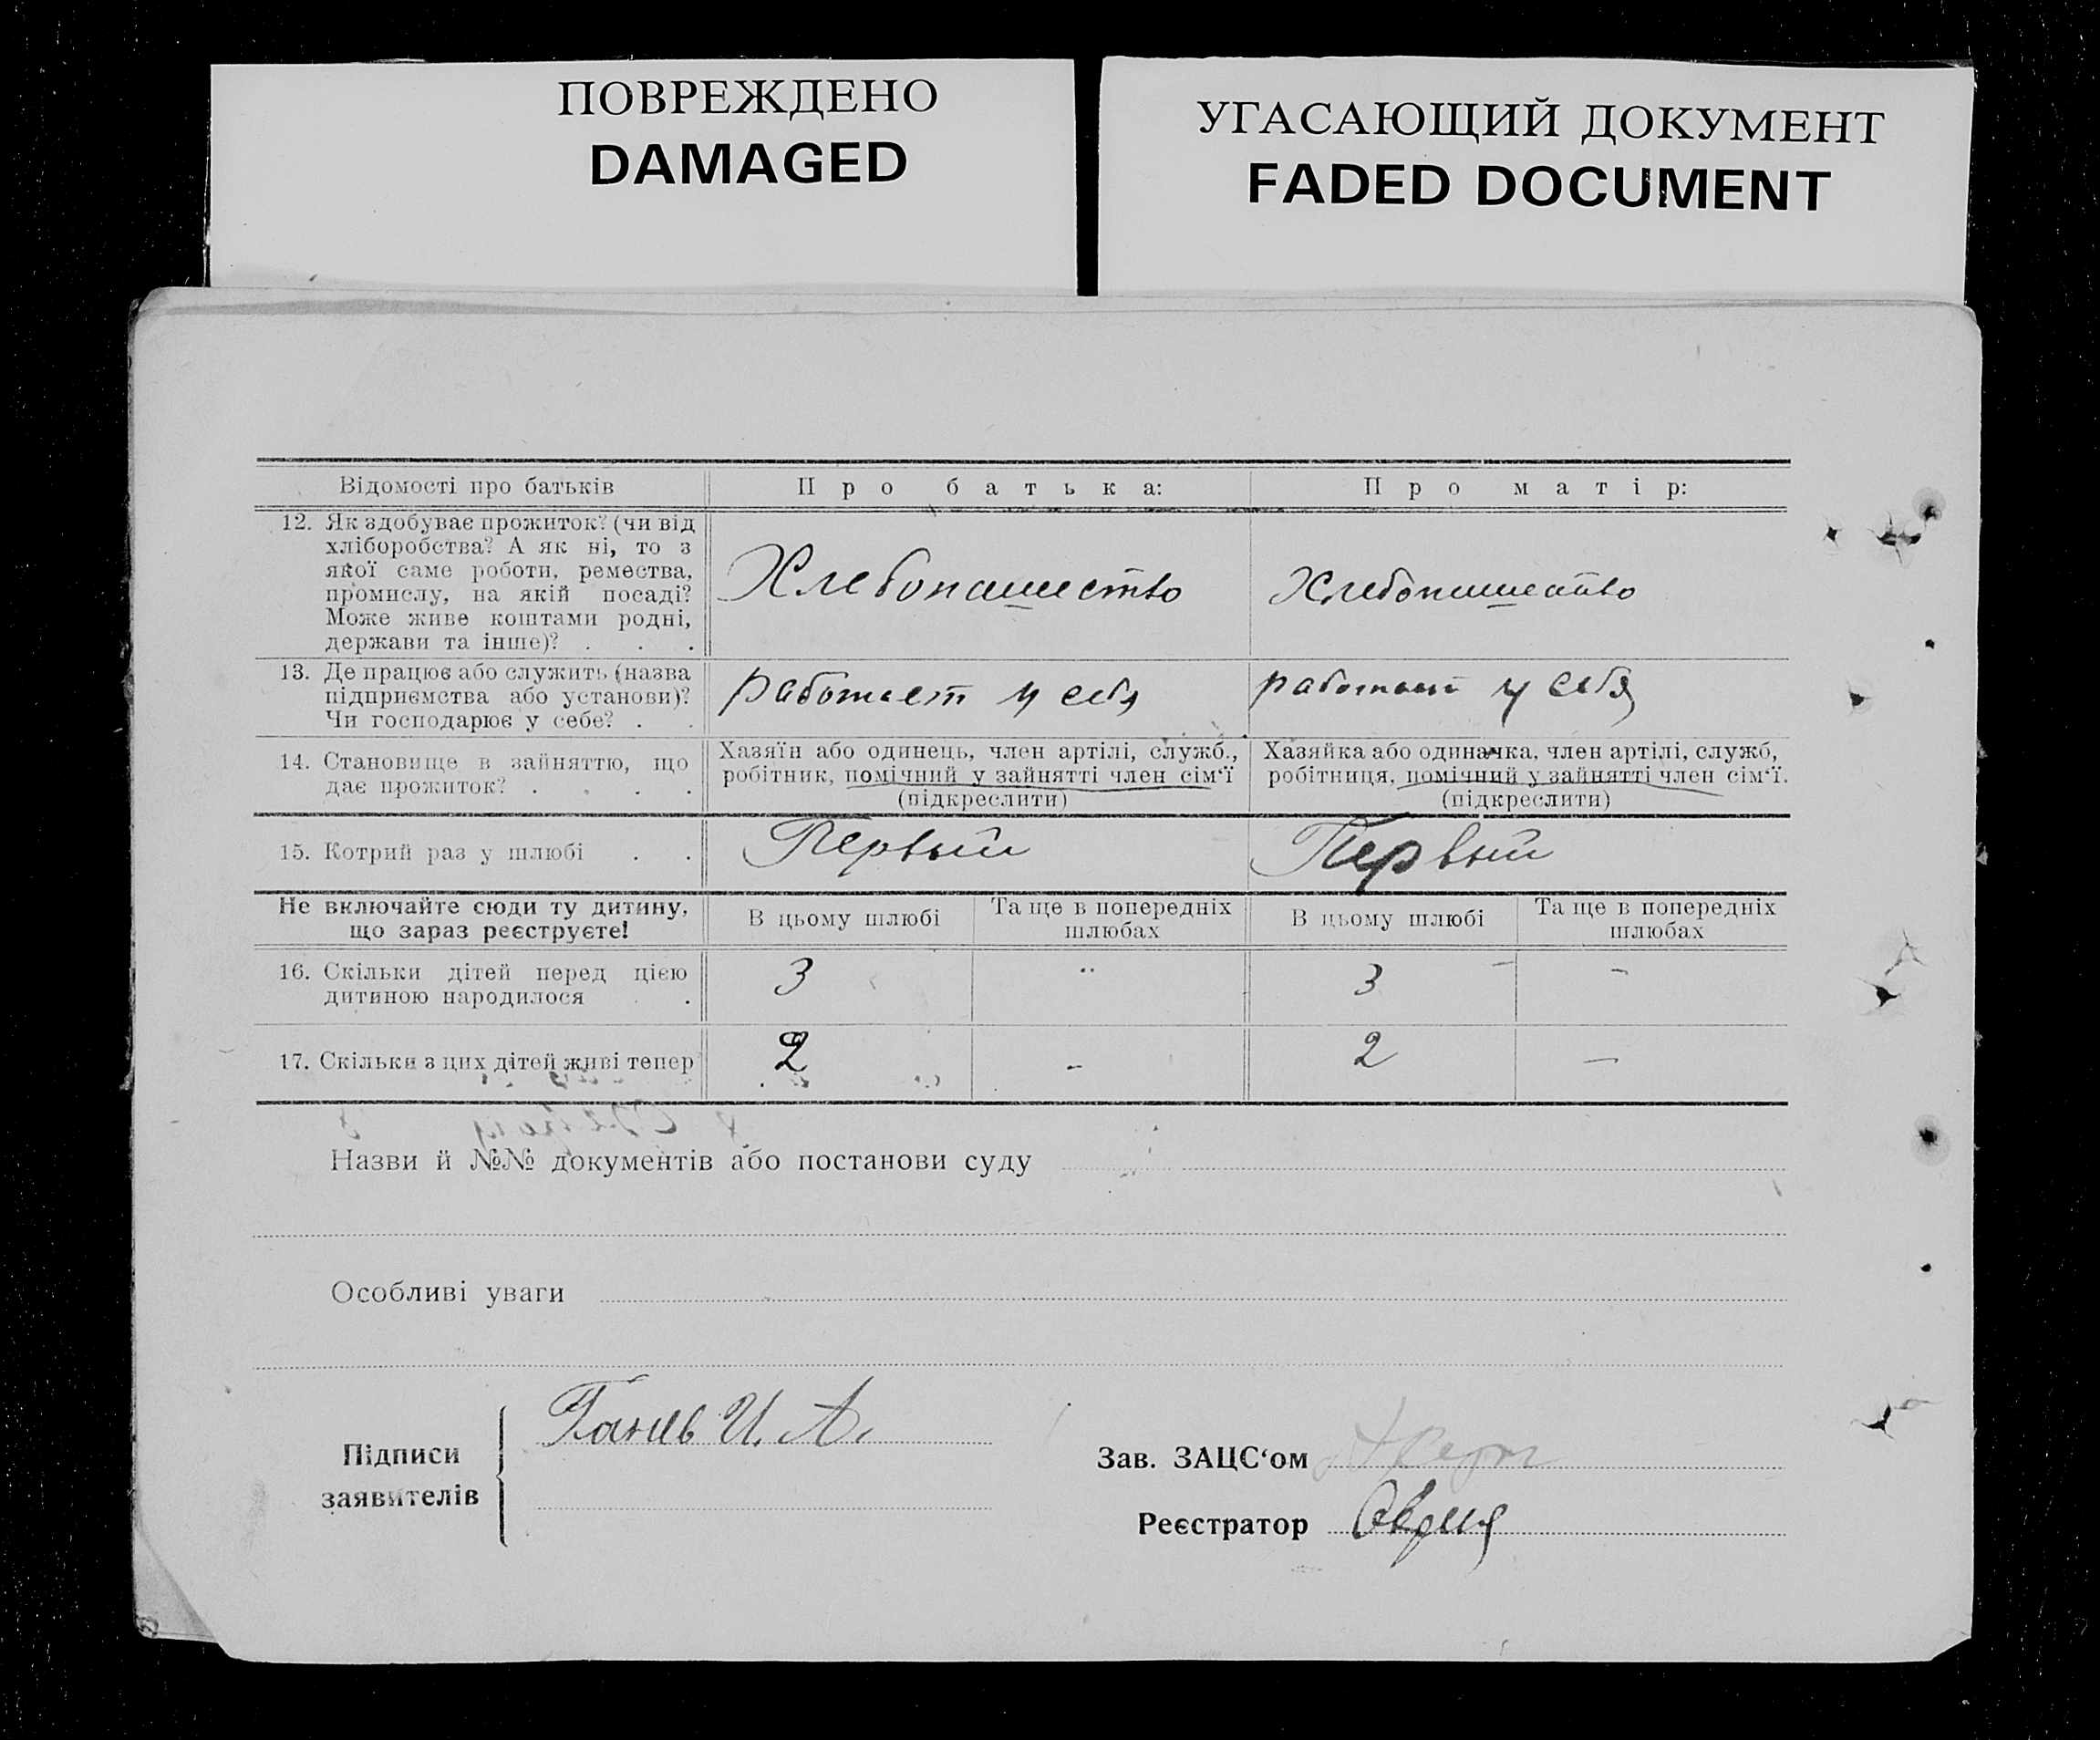 ПОВРЕЖДЕНО
DAMAGED
УГАСАЮЩИЙ ДОКУМЕНТ
FADED DOCUMENT
Відомості про батьків
Про батька:
Про матір:
12. Як здобуває прожиток? (чи від
хліборобства? А як ні, то з
якої саме роботи, ремества,
промислу, на якій посаді?
Може живе коштами родні,
держави та інше)? . . .
Хлебопашество
Хлебопашество
13. Де працює або служить (назва
підприємства або установи)?
Чи господарює у себе? . .
работает у себя
работает у себя
14. Становище в зайняттю, що
дає прожиток? . . . .
Хазяїн або одинець, член артілі, служб.,
робітник, помічний у зайнятті член сім‘ї
(підкреслити)
Хазяйка або одиначка, член артілі, служб,
робітниця, помічний у зайнятті член сім‘ї.
(підкреслити)
15. Котрий раз у шлюбі . .
Первый
Первый
Не включайте сюди ту дитину,
що зараз реєструєте!
В цьому шлюбі
Та ще в попередніх
шлюбах
В цьому шлюбі
Та ще в попередніх
шлюбах
16. Скільки дітей перед цією
дитиною народилося .
3 " 3 -
17. Скільки з цих дітей живі тепер
2 - 2 —
Назви й №№ документів або постанови суду
Особливі уваги
Підписи
заявителів
И. А.
Зав. ЗАЦС‘ом
Реєстратор